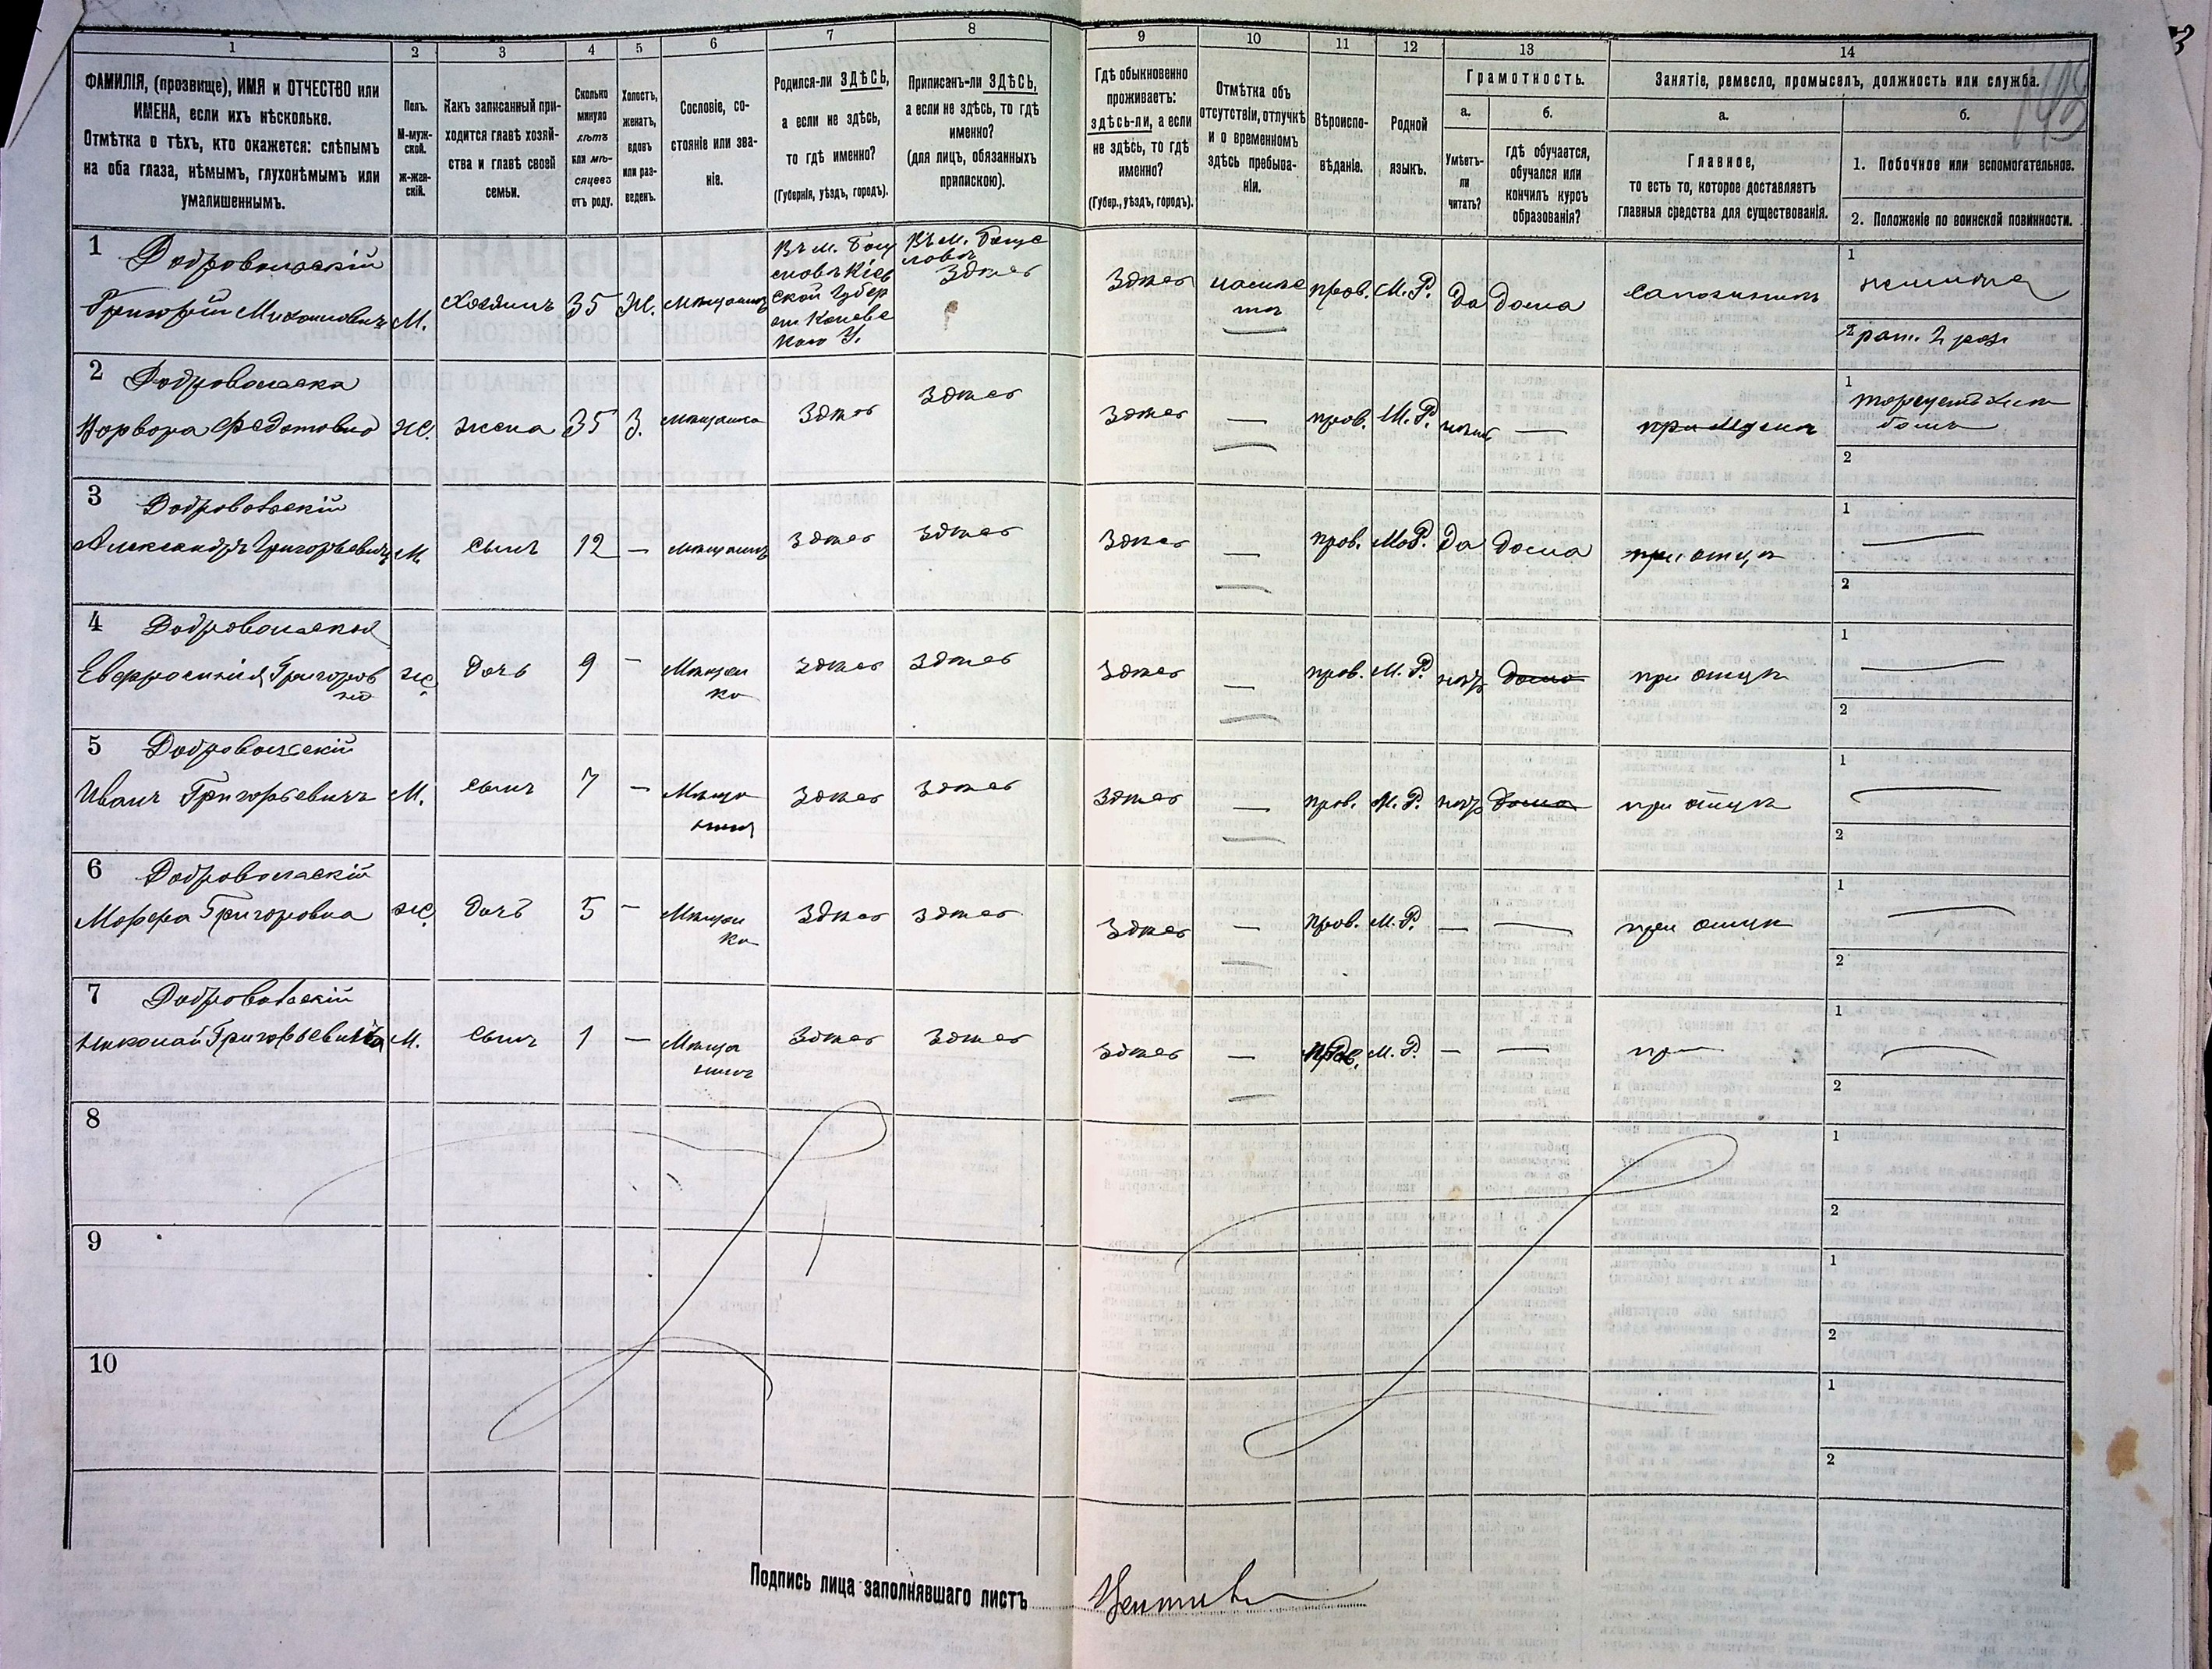 1 2 3 4 5 6 7 8 9 10 11 12 13 14
ФАМИЛІЯ, (прозвище), ИМЯ и ОТЧЕСТВО или
ИМЕНА, если ихъ нѣсколько.
Отмѣтка о тѣхъ, кто окажется: слѣпымъ
на оба глаза, нѣмымъ, глухонѣмымъ или
умалишеннымъ.
Полъ.
М-муж-
ской.
Ж-жен-
скій.
Какъ записанный при-
ходится главѣ хозяй-
ства и главѣ своей
семьи.
Сколько
минуло
лѣтъ
или мѣ-
сяцевъ
отъ роду.
Холостъ,
женатъ,
вдовъ
или раз-
веденъ.
Сословіе, со-
стояніе или зва-
ніе.
Родился-ли ЗДѢСЬ,
а если не здѣсь,
то гдѣ именно?
(Губернія, уѣздъ, городъ).
Приписанъ-ли ЗДѢСЬ,
а если не здѣсь, то гдѣ
именно?
(для лицъ, обязанныхъ
припискою).
Гдѣ обыкновенно
проживаетъ:
здѣсь-ли, а если
не здѣсь, то гдѣ
именно?
(Губер., уѣздъ, городъ).
Отмѣтка объ
отсутствіи, отлучкѣ
и о временномъ
здѣсь пребыва-
ніи.
Вѣроиспо-
вѣданіе.
Родной
языкъ.
Грамотность.
а.
Умѣетъ-
ли
читать?
б.
гдѣ обучается,
обучался или
кончилъ курсъ
образованія?
Занятіе, ремесло, промыселъ, должность или служба.
а.
Главное,
то есть то, которое доставляетъ
главныя средства для существованія.
б.
1. Побочное или вспомогательное.
2. Положеніе по воинской повинности.
1 Добровольскій
Григорій Михаиловичъ М. хозяинъ 35 Ж. мѣщанинъ
Въ м. Богу
славѣ Кіев
ской Губер
ніи Канев
каго У.
Въ м. Богу
славѣ
Здѣсь
Здѣсь прав. М. Р. Да дома сапожникъ
1
2 рат. 2 раз.
2 Добровольска
Варвара Федотовна Ж. жена 35 З. мѣщанка Здѣсь Здѣсь Здѣсь — прав. М. Р. — при мужѣ
1
2
3 Добровольскій
Александръ Григорьевичъ М. сынъ 12 — мѣщанинъ здѣсь здѣсь Здѣсь — прав. М. Р. Да дома при отцѣ
1 —
2
4 Добровольская
Евфросинія Григоров
на Ж. дочь 9 — Мѣщан
ка здѣсь здѣсь Здѣсь — прав. М. Р. нѣтъ дома при отцѣ
1 —
2
5 Добровольскій
Иванъ Григорьевичъ М. сынъ 7 — Мѣща
нинъ здѣсь здѣсь Здѣсь — прав. М. Р. нѣтъ дома при отцѣ
1 —
2
6 Добровольскій
Марфа Григоровна Ж. дочь 5 — Мѣщан
ка здѣсь здѣсь Здѣсь — прав. М. Р. — — при отцѣ
1 —
2
7 Добровольскій
Николай Григорьевичъ М. сынъ 1 — Мѣща
нинъ здѣсь здѣсь здѣсь — прав. М. Р. — — при
1 —
2
8
1
2
9
1
2
10
1
2
Подпись лица заполнявшаго листъ